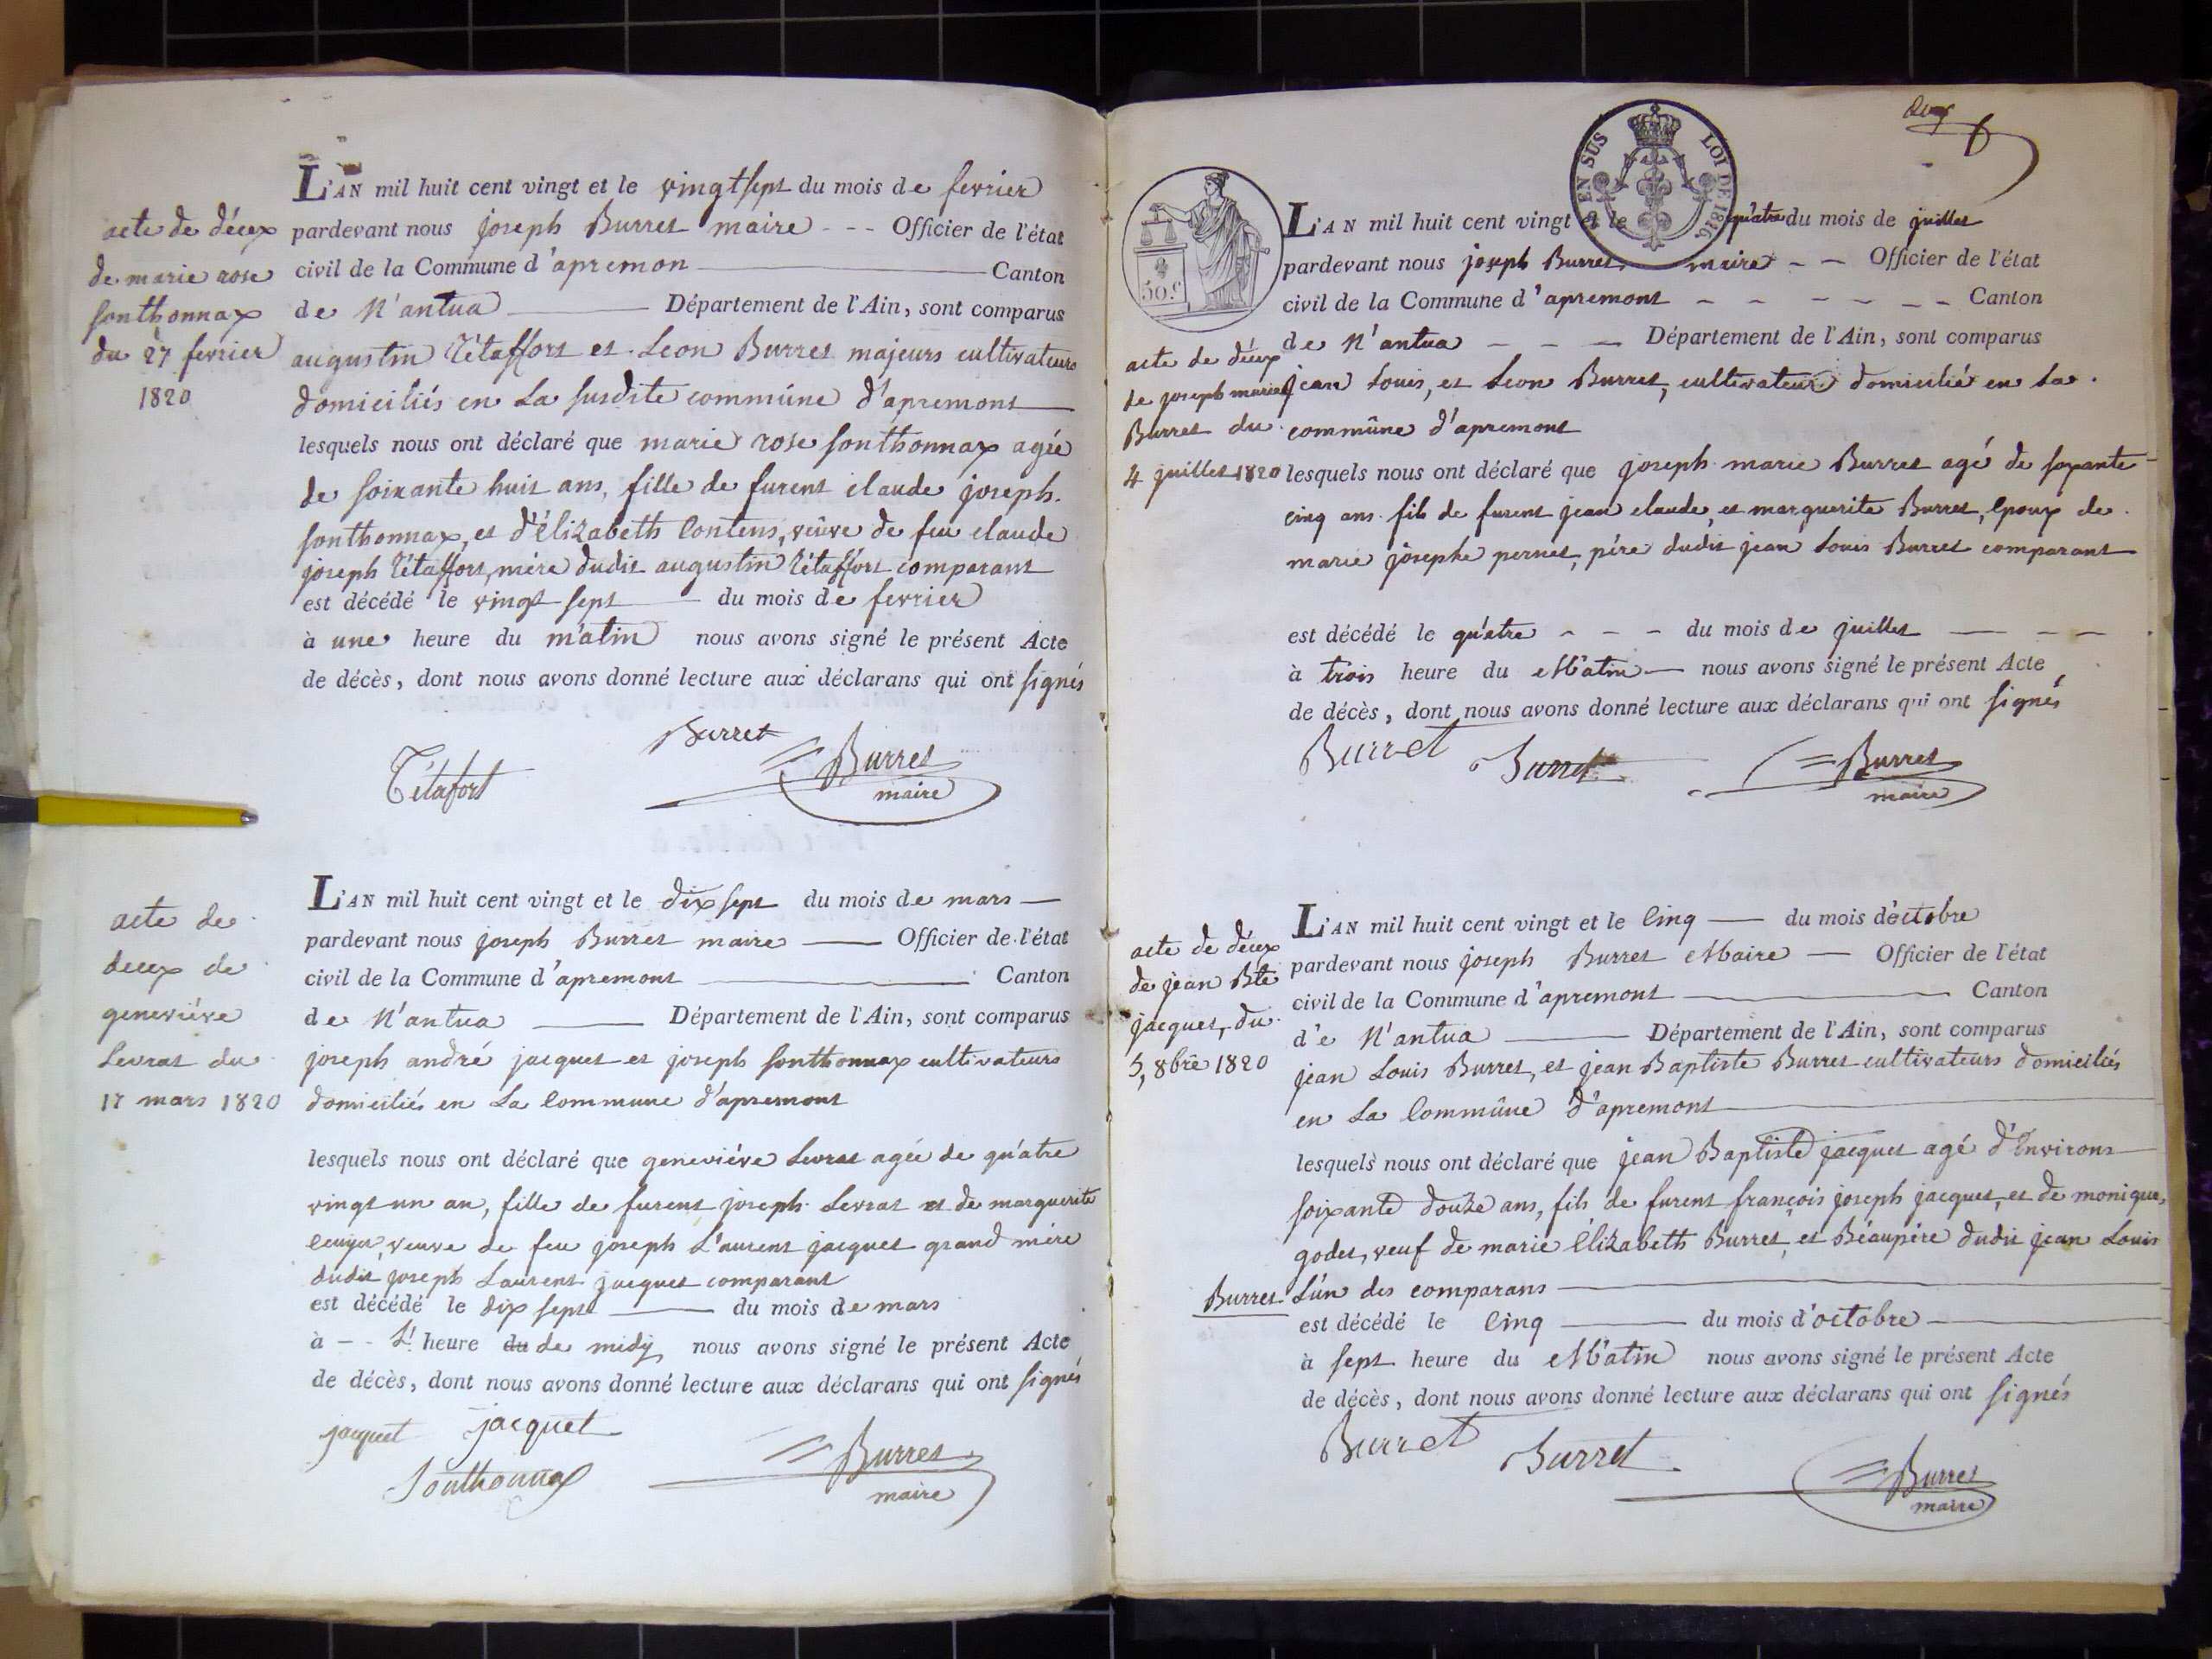 acte de décex
de marie rose
sonthonnax
du 27 fevrier
1820
L'AN mil huit cent vingt et le vingt sept du mois de fevrier
pardevant nous joseph Burret maire - - - Officier de l'état
civil de la Commune d'apremon Canton
de N'antua Département de l'Ain, sont comparus
augustin Tétaffort et Leon Burret majeurs cultivateurs
domiciliés en La susdite commune d'apremont
lesquels nous ont déclaré que marie rose sonthonnax agée
de soixante huit ans, fille de furent claude joseph
sonthonnax, et d'élizabeth Contens, veuve de feu claude
joseph Tétaffort, mère dudit augustin Tétaffort comparant
est décédé le vingt sept du mois de fevrier
à une heure du m'atin nous avons signé le présent Acte
de décès, dont nous avons donné lecture aux déclarans qui ont signés
Burret
Tétafort
Burret
maire
acte de
decex de
geneviéve
Levrat du
17 mars 1820
L'AN mil huit cent vingt et le dix sept du mois de mars
pardevant nous joseph Burret maire Officier de l'état
civil de la Commune d'apremont Canton
de N'antua Département de l'Ain, sont comparus
joseph andré jacquet et joseph sonthonnax cultivateurs
domiciliés en La Commune d'apremont
lesquels nous ont déclaré que geneviéve Levrat agée de qu'atre
vingt un an, fille de furent joseph Levrat et de marguerite
veuve de feu joseph L'aurent jacquet grand mère
dudit joseph Laurent jacquet comparant
est décédé le dix sept du mois de mars
à - - L' heure du de midy nous avons signé le présent Acte
de décès, dont nous avons donné lecture aux déclarans qui ont signés
jacquet jacquet
Sonthonnax
Burret
maire
EN SUS LOI DE 1816
50 c
acte de décex
de joseph marie
Burret du
4 juillet 1820
L'AN mil huit cent vingt et le qu'atre du mois de juillet
pardevant nous joseph Burret maire - - Officier de l'état
civil de la Commune d'apremont - - - - - - Canton
de N'antua - - - Département de l'Ain, sont comparus
jean Louis, et Leon Burret, cultivateurs domicilié en La
commûne d'apremont
lesquels nous ont déclaré que joseph marie Burret agé de soxante
cinq ans fils de furent jean claude, et marguerite Burret, Epoux de
marie josephe pernet, pére dudit jean Louis Burret comparant
est décédé le qu'atre - - - du mois de juillet
à trois heure du M'atin nous avons signé le présent Acte
de décès, dont nous avons donné lecture aux déclarans qui ont signés
Burret Burret
Burret
maire
acte de décex
de jean Bte
jacquet, du
5, 8bre 1820
L'AN mil huit cent vingt et le Cinq du mois d'octobre
pardevant nous joseph Burret Maire Officier de l'état
civil de la Commune d'apremont Canton
d'e N'antua Département de l'Ain, sont comparus
jean Louis Burret, et jean Baptiste Burret cultivateurs domiciliés
en La Commûne d'apremont
lesquels nous ont déclaré que jean Baptiste jacquet agé d'Environs
soixante douze ans, fils de furent françois joseph jacquet, et de monique
godet, veuf de marie Elizabeth Burret, et Béaupére dudit jean Louis
Burret L'un des comparans
est décédé le Cinq du mois d'octobre
à sept heure du M'atin nous avons signé le présent Acte
de décès, dont nous avons donné lecture aux déclarans qui ont signés
Burret Burret
Burret
maire